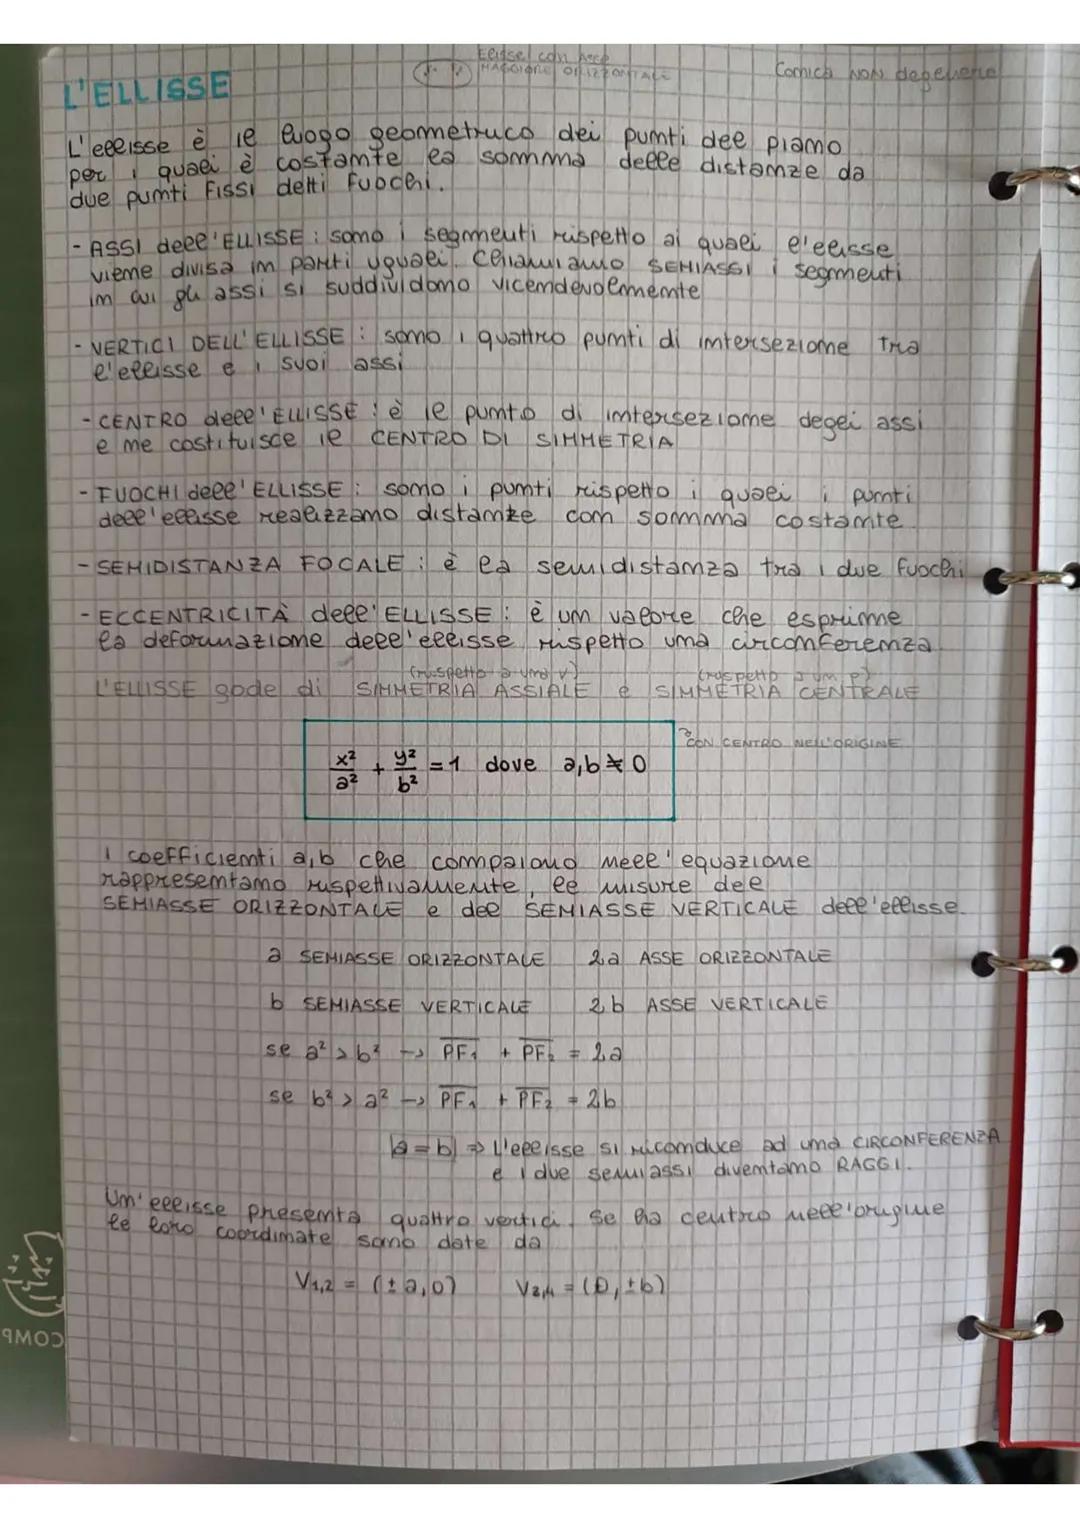 Ellisse con asse
MAGGIORE ORIZZONTALE
Conica NON degenere
L'ELLISSE
L'ellisse è il luogo geometruco dei punti del piano
per i quali è costante la somma delle distanze da
due punti fissi detti fuochi.
- ASSI dell'ELLISSE : sono i segmenti rispetto ai quali l'ellisse
viene divisa in parti uguali. Chiamiamo SEMIASSI i segmenti
in cui gli assi si suddividono vicendevolmente
- VERTICI DELL'ELLISSE : sono i quattro punti di intersezione tra
l'ellisse e i suoi assi
- CENTRO dell'ELLISSE : è il punto di intersezione degli assi
e ne costituisce il CENTRO DI SIMMETRIA
- FUOCHI dell'ELLISSE : sono i punti rispetto i quali i punti
dell'ellisse realizzano distanze con somma costante.
- SEMIDISTANZA FOCALE : è la semidistanza tra i due fuochi
- ECCENTRICITÀ dell'ELLISSE : è un valore che esprime
la deformazione dell'ellisse rispetto una circonferenza
(rispetto a una r) (rispetto a un P)
L'ELLISSE gode di SIMMETRIA ASSIALE e SIMMETRIA CENTRALE
CON CENTRO NELL'ORIGINE
x²/a² + y²/b² = 1 dove a,b ≠ 0
I coefficienti a,b che compaiono nell'equazione
rappresentano rispettivamente, le misure del
SEMIASSE ORIZZONTALE e del SEMIASSE VERTICALE dell'ellisse.
a SEMIASSE ORIZZONTALE 2a ASSE ORIZZONTALE
b SEMIASSE VERTICALE 2b ASSE VERTICALE
se a² > b² → PF₁ + PF₂ = 2a
se b² > a² → PF₁ + PF₂ = 2b
|a = b| ⇒ L'ellisse si riconduce ad una CIRCONFERENZA
e i due semiassi diventano RAGGI.
Un'ellisse presenta quattro vertici. Se ha centro nell'origine
le loro coordinate sono date da
V₁,₂ = (± a, 0) V₃,₄ = (0, ± b)
COMP